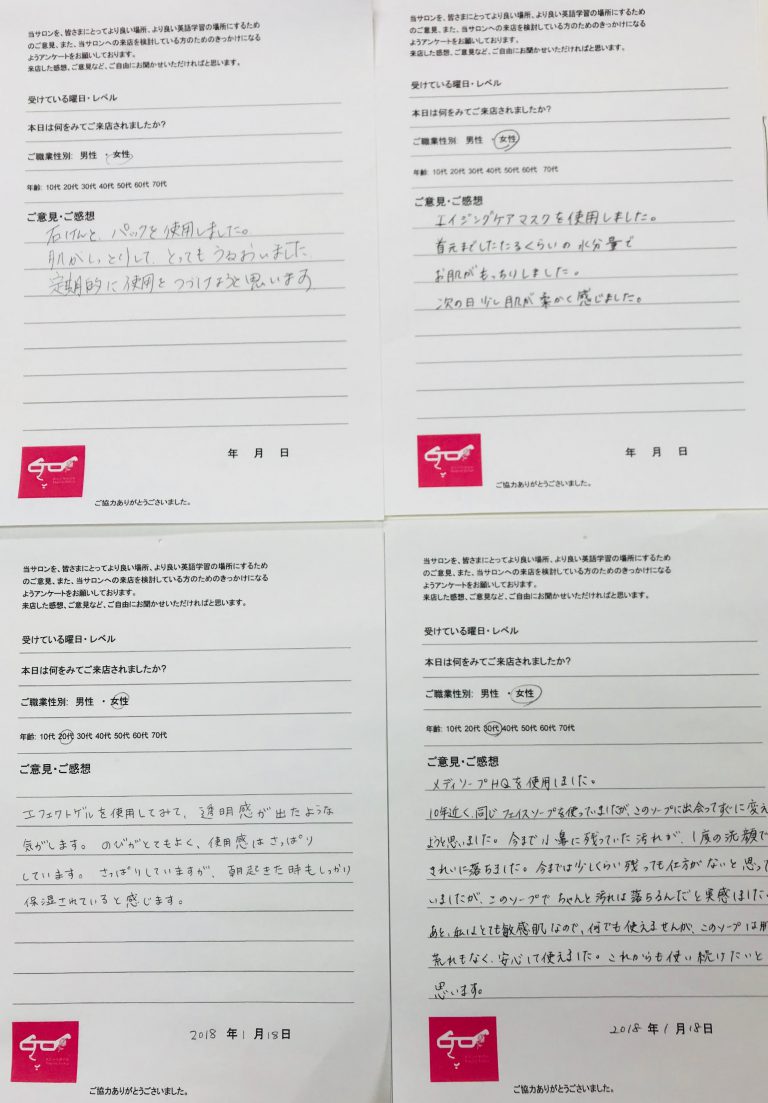 当サロンを、皆さまにとってより良い場所、より良い英語学習の場所にするため
のご意見、また、当サロンへの来店を検討している方のためのきっかけになる
ようアンケートをお願いしております。
来店した感想、ご意見など、ご自由にお聞かせいただければと思います。
受けている曜日・レベル
本日は何をみてご来店されましたか?
ご職業性別: 男性 ・女性
年齢: 10代 20代 30代 40代 50代 60代 70代
ご意見・ご感想
石けんと、パックを使用しました。
肌がしっとりして、とってもうるおいました
定期的に使用をつづけようと思います
年 月 日
ご協力ありがとうございました。
当サロンを、皆さまにとってより良い場所、より良い英語学習の場所にするため
のご意見、また、当サロンへの来店を検討している方のためのきっかけになる
ようアンケートをお願いしております。
来店した感想、ご意見など、ご自由にお聞かせいただければと思います。
受けている曜日・レベル
本日は何をみてご来店されましたか?
ご職業性別: 男性 ・女性
年齢: 10代 20代 30代 40代 50代 60代 70代
ご意見・ご感想
エイジングケアマスクを使用しました。
首元までしたたるくらいの水分量で
お肌がもっちりしました。
次の日少し肌が柔かく感じました。
年 月 日
ご協力ありがとうございました。
当サロンを、皆さまにとってより良い場所、より良い英語学習の場所にするため
のご意見、また、当サロンへの来店を検討している方のためのきっかけになる
ようアンケートをお願いしております。
来店した感想、ご意見など、ご自由にお聞かせいただければと思います。
受けている曜日・レベル
本日は何をみてご来店されましたか?
ご職業性別: 男性 ・女性
年齢: 10代 20代 30代 40代 50代 60代 70代
ご意見・ご感想
エフェクトゲルを使用してみて、透明感が出たような
気がします。のびがとてもよく、使用感はさっぱり
しています。さっぱりしていますが、朝起きた時もしっかり
保湿されていると感じます。
2018 年 1 月 18 日
ご協力ありがとうございました。
当サロンを、皆さまにとってより良い場所、より良い英語学習の場所にするため
のご意見、また、当サロンへの来店を検討している方のためのきっかけになる
ようアンケートをお願いしております。
来店した感想、ご意見など、ご自由にお聞かせいただければと思います。
受けている曜日・レベル
本日は何をみてご来店されましたか?
ご職業性別: 男性 ・女性
年齢: 10代 20代 30代 40代 50代 60代 70代
ご意見・ご感想
メディソープHQを使用しました。
10年近く、同じフェイスソープを使っていましたが、このソープに出会ってすぐに変え
ようと思いました。今まで小鼻に残っていた汚れが、1度の洗顔で
きれいに落ちました。今までは少しくらい残っても仕方がないと思って
いましたが、このソープでちゃんと汚れは落ちるんだと実感しました
あと、私はとても敏感肌なので、何でも使えませんが、このソープは肌
荒れもなく、安心して使えました。これからも使い続けたいと
思います。
2018 年 1 月 18 日
ご協力ありがとうございました。